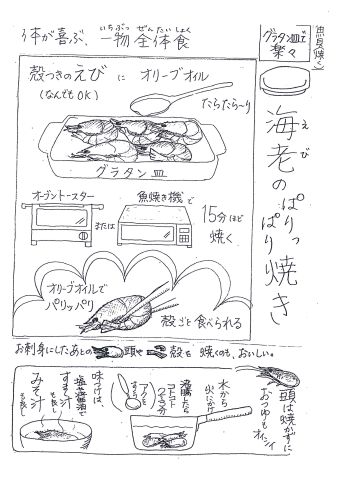 魚貝(焼く)
グラタン皿で
楽々
海老のぱりっぱり焼き
えび
体が喜ぶ、一物全体食
いちぶつ ぜんたいしょく
殻つきのえび に オリーブオイル
(なんでもOK)
たらたら〜り
グラタン皿
オーブントースター
または
魚焼き機で
15分ほど
焼く
オリーブオイルで
パリッパリ
殻ごと食べられる
お刺身にしたあとの 頭や 殻を 焼くのも、おいしい。
頭は焼かずに
おつゆもオイシイ
水から
火にかけ
沸騰したら
コトコト
5分
アクを
すくう
味つけは、
塩や醤油で
すまし汁
も良し
みそ汁
も良し